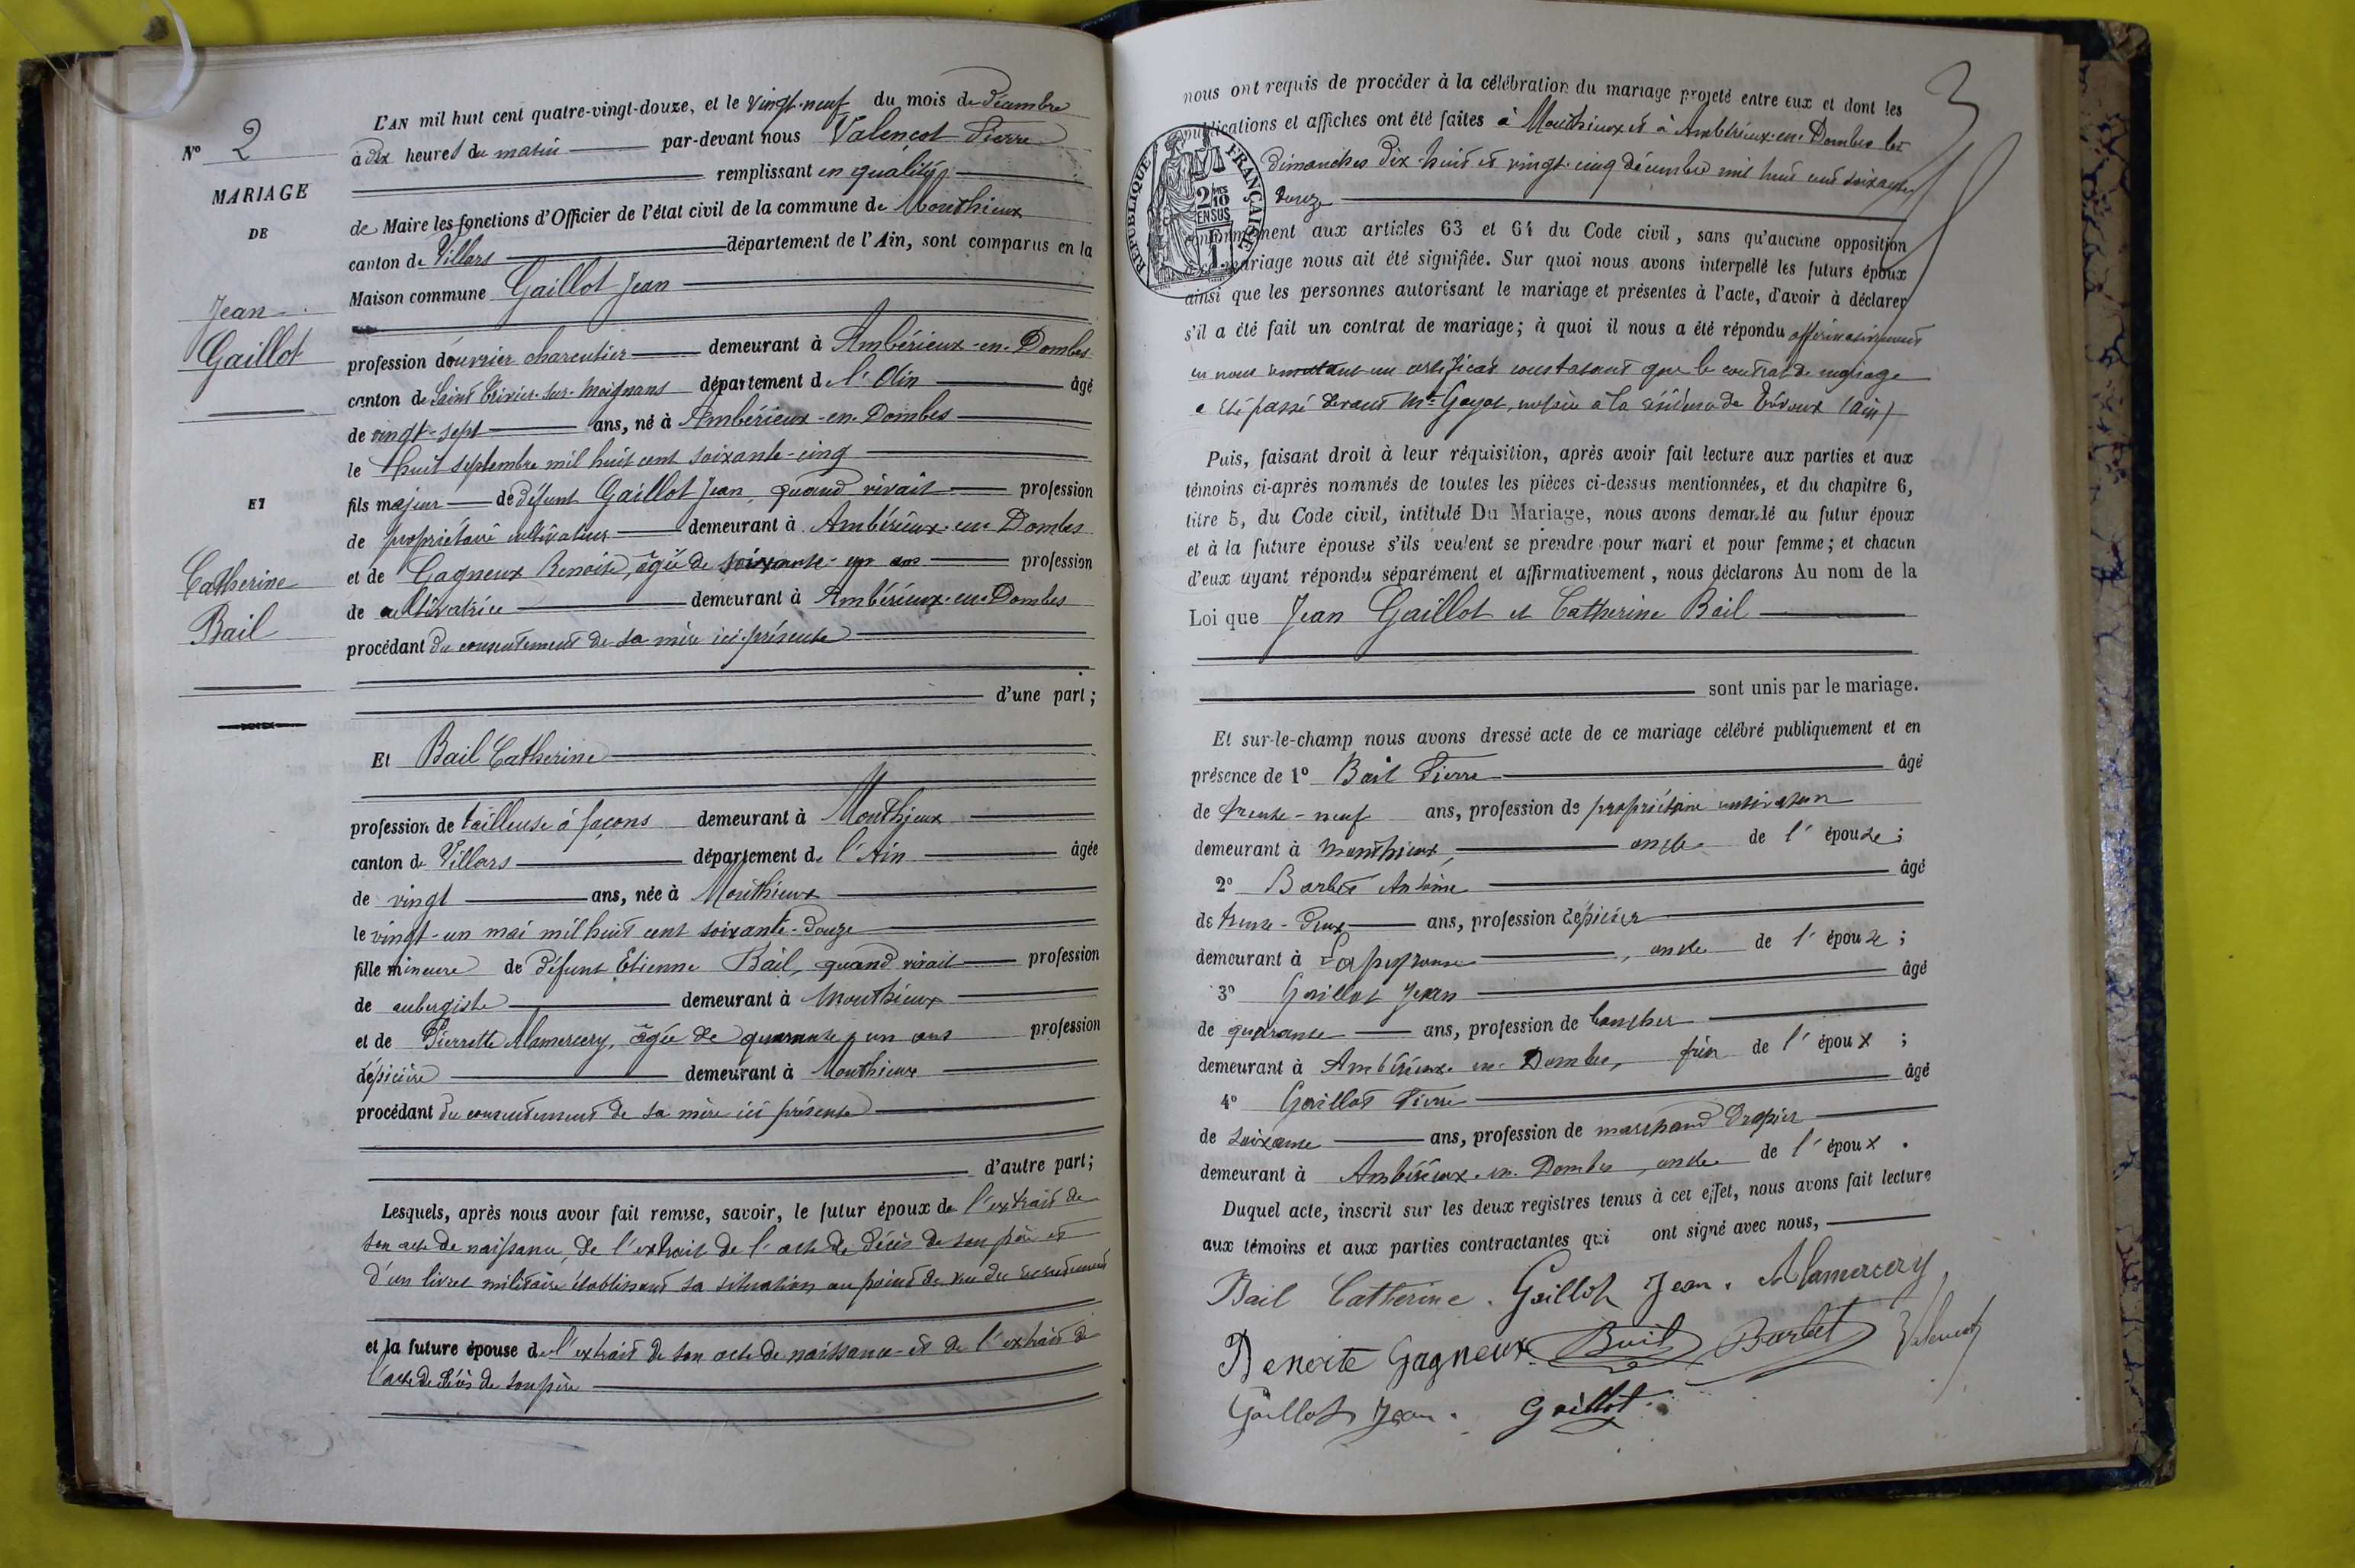 L'AN mil huit cent quatre-vingt-douze, et le Vingt-neuf du mois de décembre
à dix heures du matin par-devant nous Valençot Pierre
remplissant en qualité
de Maire les fonctions d'Officier de l'état civil de la commune de Monthieux
canton de Villars département de l'Ain, sont comparus en la
Maison commune Gaillot Jean
profession d'ouvrier charcutier demeurant à Ambérieux-en-Dombes
canton de Saint Trivier-sur-Moignans département de l'Ain âgé
de vingt-sept ans, né à Ambérieux-en-Dombes
le huit septembre mil huit cent soixante-cinq
fils majeur de défunt Gaillot Jean, quand vivait profession
de propriétaire cultivateur demeurant à Ambérieux-en-Dombes
et de Gagneux Benoite, âgée de soixante-un ans profession
de cultivatrice demeurant à Ambérieux-en-Dombes
procédant du consentement de sa mère ici présente
d'une part;
Et Bail Catherine
profession de tailleuse à façons demeurant à Monthieux
canton de Villars département de l'Ain âgée
de vingt ans, née à Monthieux
le vingt-un mai mil huit cent soixante-douze
fille mineure de défunt Etienne Bail, quand vivait profession
de aubergiste demeurant à Monthieux
et de Pierrette Alamercery, âgée de quarante un ans profession
d'épicière demeurant à Monthieux
procédant du consentement de sa mère ici présente
d'autre part;
Lesquels, après nous avoir fait remise, savoir, le futur époux de l'extrait de
son acte de naissance, de l'extrait de l'acte de décès de son père et
d'un livret militaire établissant sa situation au point de vue du recrutement
et la future épouse de l'extrait de son acte de naissance et de l'extrait de
l'acte de décès de son père
N° 2
MARIAGE
DE
Jean
Gaillot
ET
Catherine
Bail
3
nous ont requis de procéder à la célébration du mariage projeté entre eux et dont les
publications et affiches ont été faites à Monthieux et à Ambérieux-en-Dombes les
dimanches dix-huit et vingt-cinq décembre mil huit cent soixante
douze
conformément aux articles 63 et 64 du Code civil, sans qu'aucune opposition
à ce mariage nous ait été signifiée. Sur quoi nous avons interpellé les futurs époux
ainsi que les personnes autorisant le mariage et présentes à l'acte, d'avoir à déclarer
s'il a été fait un contrat de mariage; à quoi il nous a été répondu affirmativement
en nous remettant un certificat constatant que le contrat de mariage
a été passé devant Me Goyot, notaire à la résidence de Trévoux (Ain)
Puis, faisant droit à leur réquisition, après avoir fait lecture aux parties et aux
témoins ci-après nommés de toutes les pièces ci-dessus mentionnées, et du chapitre 6,
titre 5, du Code civil, intitulé Du Mariage, nous avons demandé au futur époux
et à la future épouse s'ils veulent se prendre pour mari et pour femme; et chacun
d'eux ayant répondu séparément et affirmativement, nous déclarons Au nom de la
Loi que Jean Gaillot et Catherine Bail
sont unis par le mariage.
Et sur-le-champ nous avons dressé acte de ce mariage célébré publiquement et en
présence de 1° Bail Pierre âgé
de trente-neuf ans, profession de propriétaire cultivateur
demeurant à Monthieux, oncle de l'épouse;
2° Barbet Antoine âgé
de trente-deux ans, profession d'épicier
demeurant à Lapeyrouse, oncle de l'épouse;
3° Gaillot Jean âgé
de quarante ans, profession de boucher
demeurant à Ambérieux-en-Dombes, frère de l'époux;
4° Gaillot Pierre âgé
de soixante ans, profession de marchand drapier
demeurant à Ambérieux-en-Dombes, oncle de l'époux.
Duquel acte, inscrit sur les deux registres tenus à cet effet, nous avons fait lecture
aux témoins et aux parties contractantes qui ont signé avec nous,
Bail Catherine. Gaillot Jean. Alamercery
Benoite Gagneux Bail Barbet Valençot
Gaillot Jean. Gaillot
RÉPUBLIQUE FRANÇAISE
2/10 EN SUS